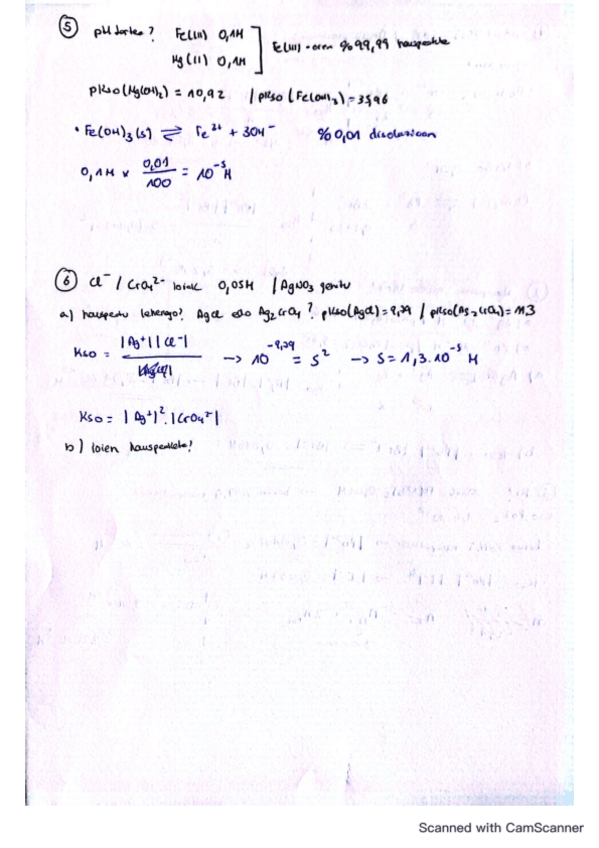 ⑤ pH tartea? Fe(III) 0,1M
Mg(II) 0,1M ] Fe(III)-aren %99,99 hauspeatzeko
pKso(Mg(OH)₂) = 10,92 / pKso(Fe(OH)₃) = 35,96
• Fe(OH)₃(s) ⇌ Fe³⁺ + 3OH⁻ %0,01 disoluzioan
0,1M × 0,01/100 = 10⁻⁵ M
⑥ Cl⁻ / CrO₄²⁻ loiak 0,05M / AgNO₃ gehitu
a) hauspeatu lehenago? AgCl edo Ag₂CrO₄? pKso(AgCl) = 9,79 / pKso(Ag₂CrO₄) = 11,3
Kso = |Ag⁺||Cl⁻| → 10⁻⁹,⁷⁹ = S² → S = 1,3·10⁻⁵ M
Kso = |Ag⁺|²·|CrO₄²⁻|
b) ioien
Scanned with CamScanner